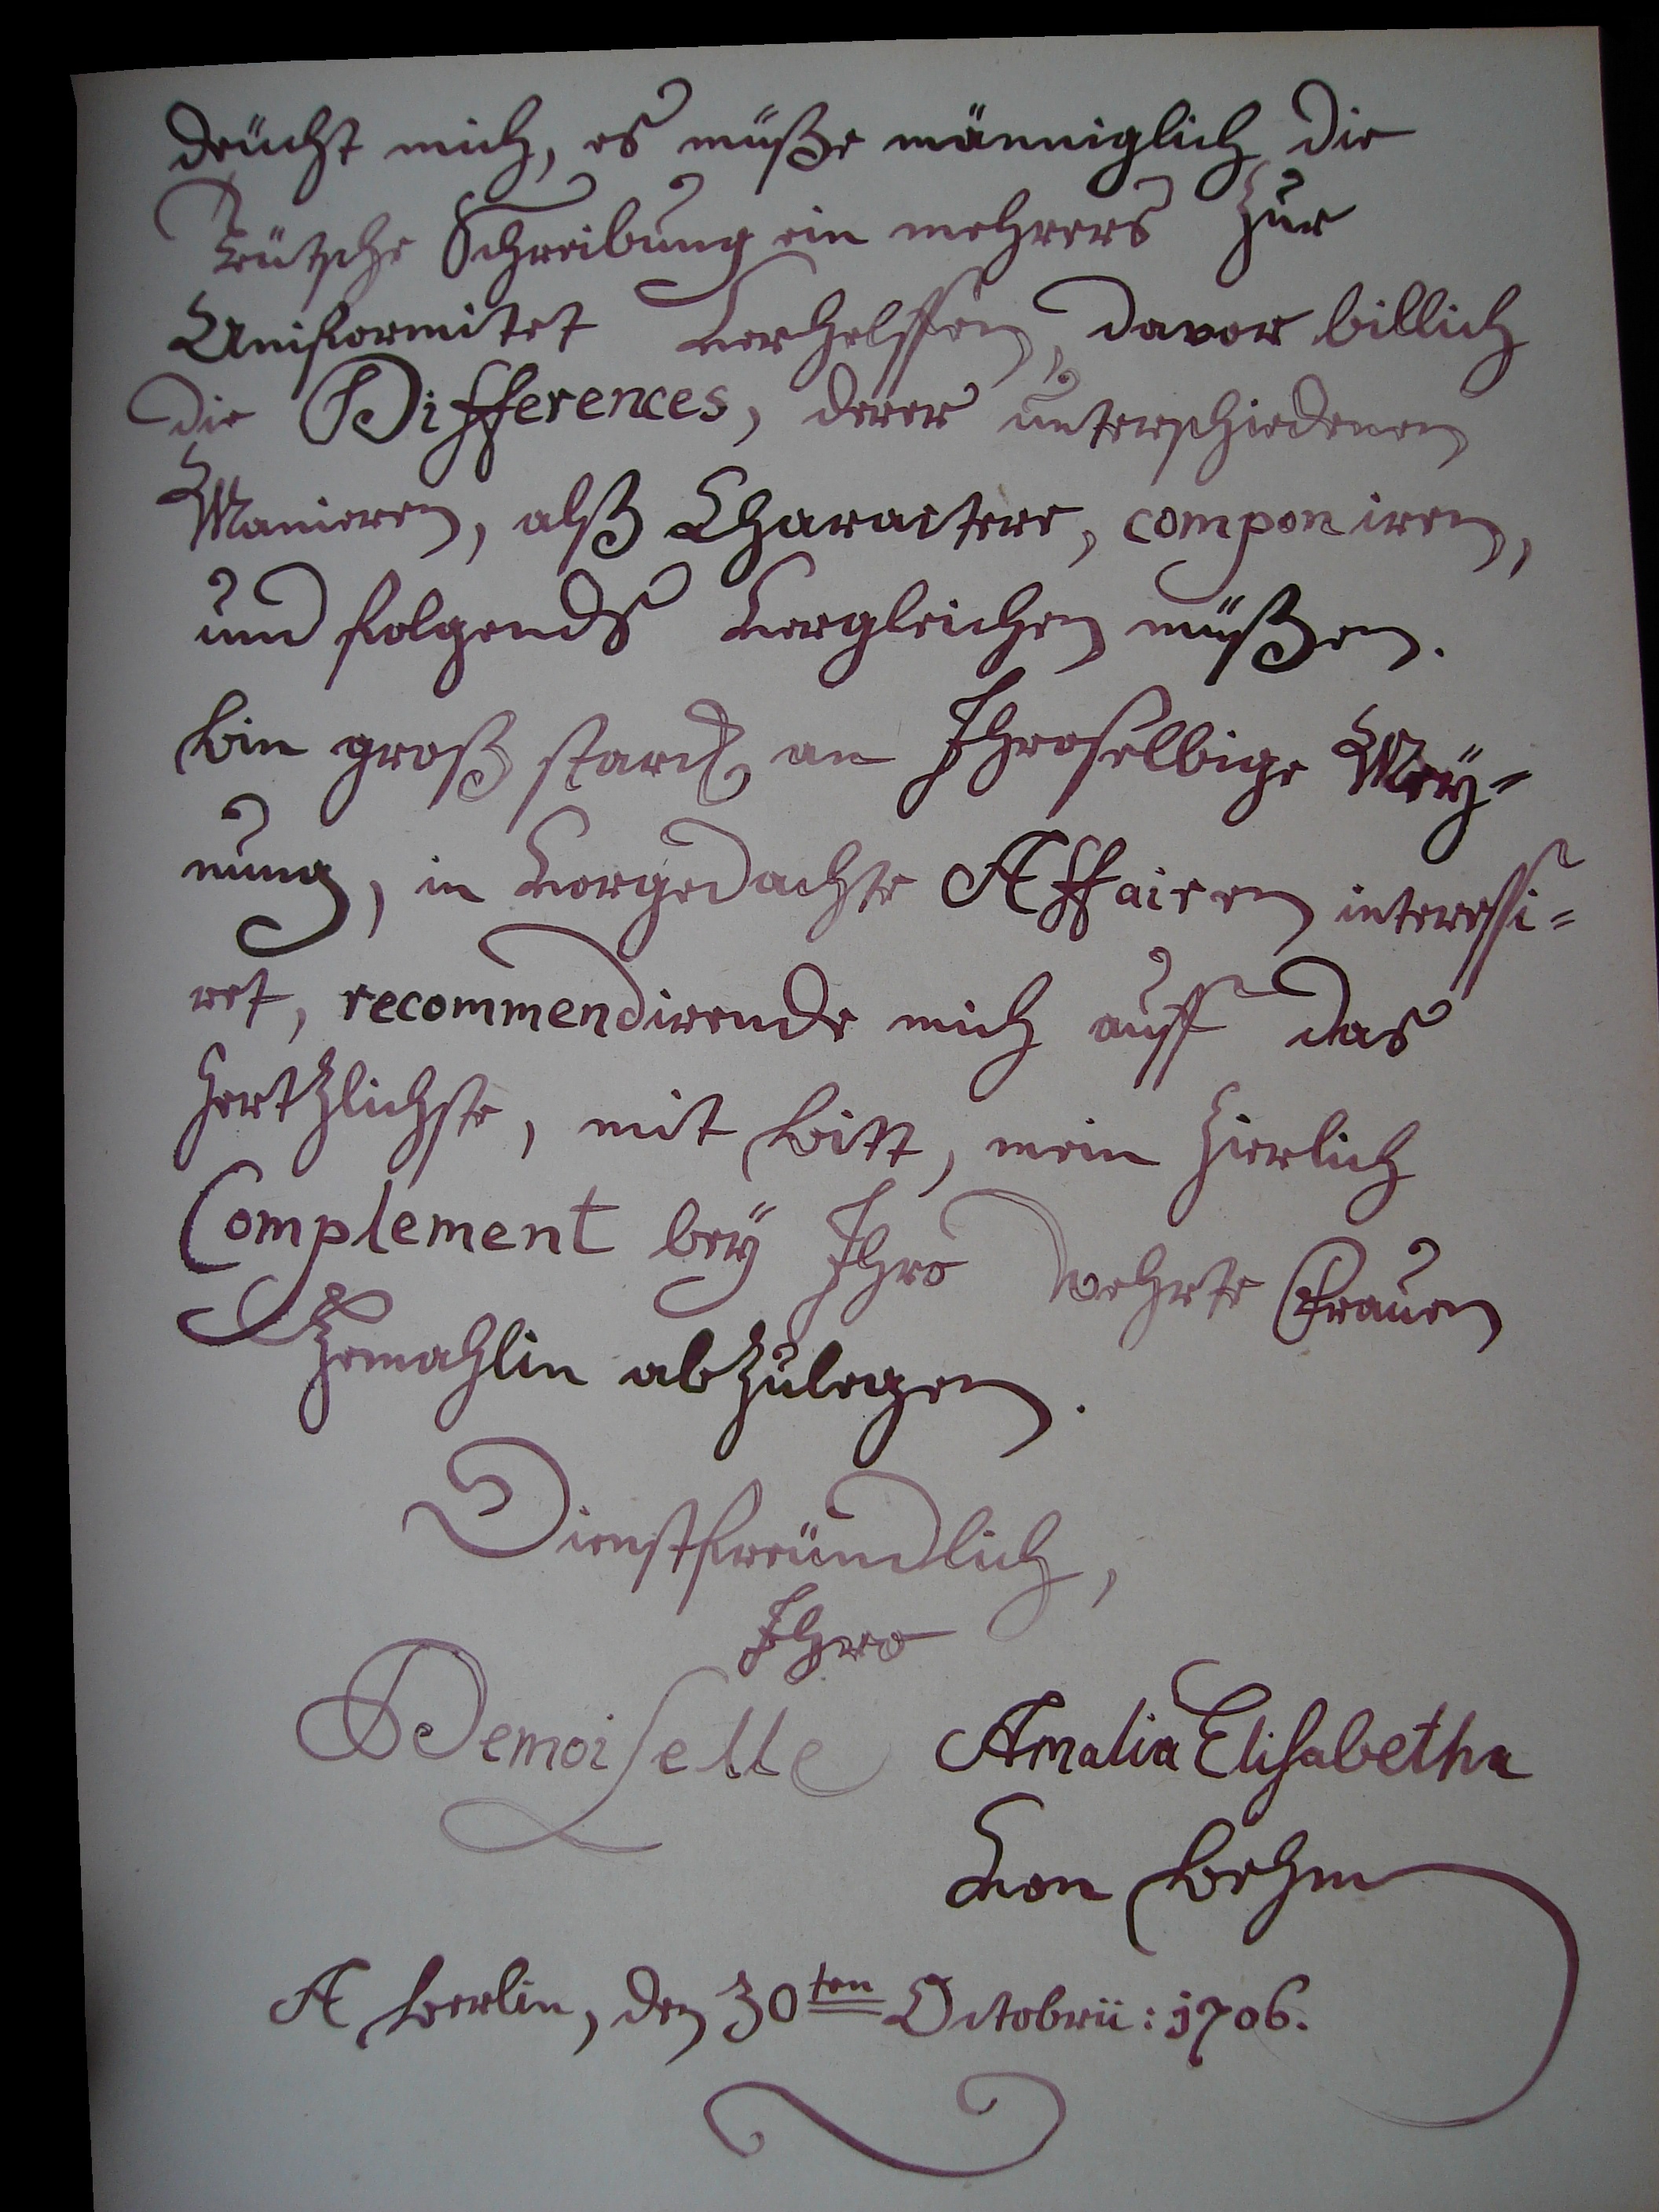 deücht mich, es müße männiglich die
Teütsche Schreibung ein mehrers zur
Uniformitet verhelffen, davor billich
die Differences, derer unterschiedenen
Manieren, alß Charactere, componiren,
und folgends vergleichen müßen.
Bin groß starck an Ihroselbige Mey=
nung, in vorgedachte Affairen interessi=
ret, recommendirende mich auff das
hertzlichste, mit Bitt, mein zierlich
Complement bey Ihro wehrte Frauen
Gemahlin abzulegen.
Dienstfreündlich,
Ihro
Demoiselle Amalia Elisabetha
von Boehm
A Berlin, den 30ten Octobrii: 1706.